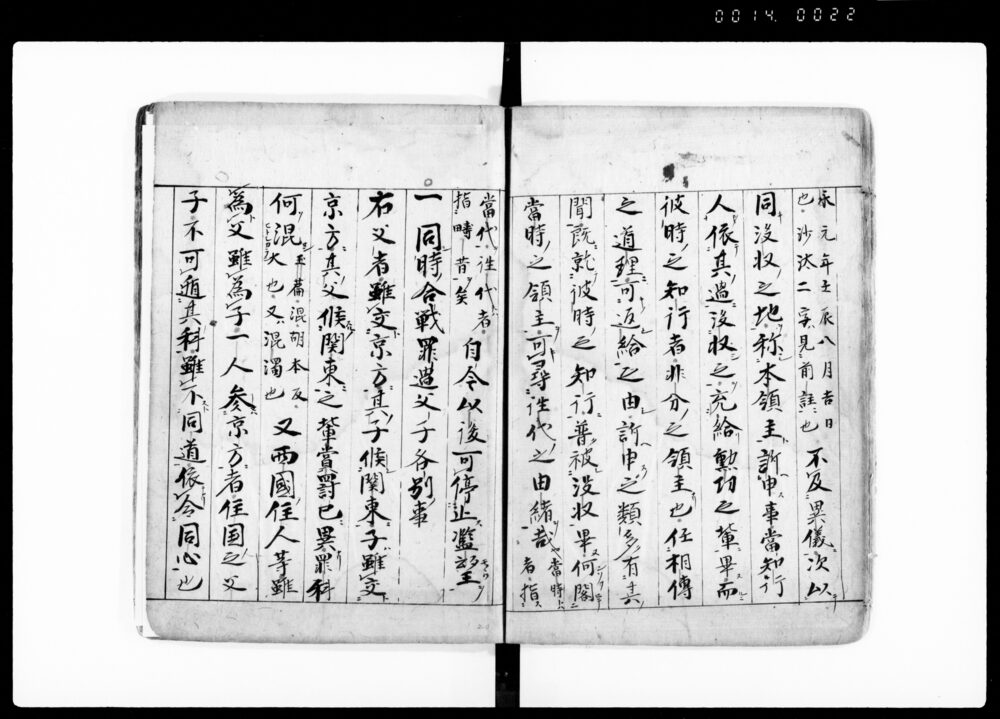 0014. 0022
承元年壬辰八月吉日
也沙汰二実見前註也 不及異儀次以
同没収之地称本領主訴申事當知行
人依其過没収之充給勲功之輩畢而
彼時之知行者非分之領主也任相傳
之道理可返給之由訴申之類多有其
聞既就彼時之知行普被没収畢何閣
當時之領主可尋往代之由緒哉 當時
者指
當代往代者
指時昔矣 自今以後可停止濫望
一 同時合戦罪過父子各別事
右父者雖交京方其子候関東子雖交
京方其父候関東之輩賞罰已異罪科
何混 玉篇混胡本反
大也又混濁也 又西國住人等雖
為父雖為子一人参京方者住国之父
子不可遁其科雖不同道依令同心也